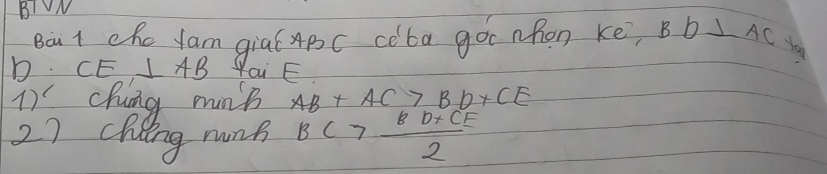 BTVN
Bài 1 cho tam giác ABC có ba góc nhọn kẻ, BD ⊥ AC tại
D. CE ⊥ AB tại E.
1) chứng minh AB + AC > BD + CE
2) chứng minh BC > \frac{BD + CE}{2}